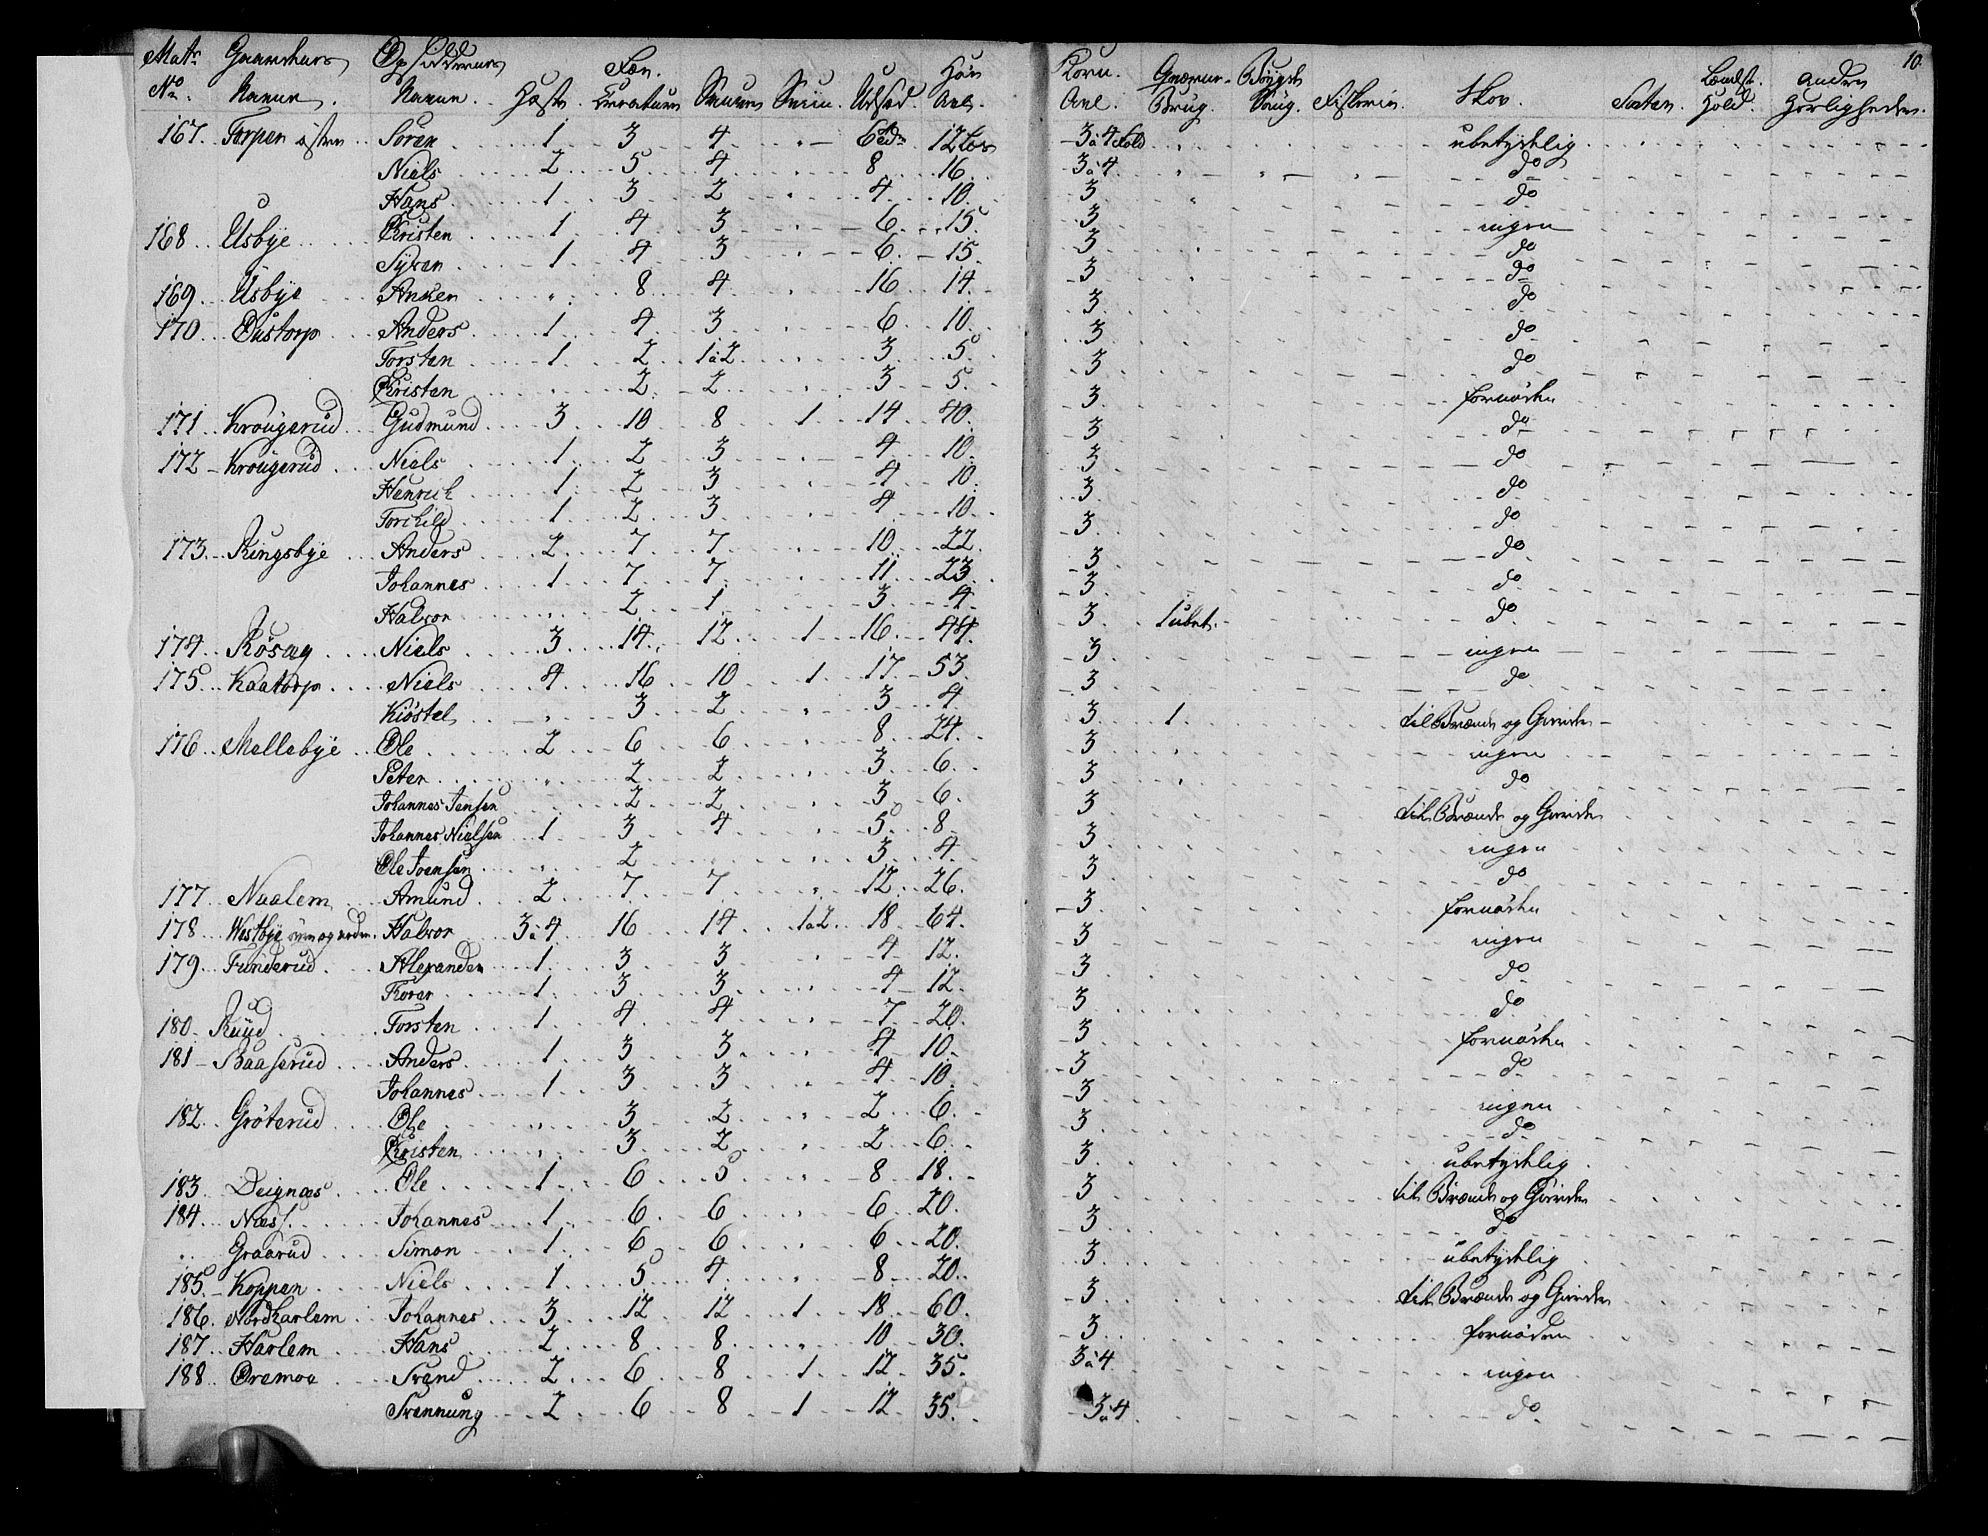 10.
Matr: Gaardens Opsidderens Fæe. Høe Korn Qværne Bøygde Lændst. Andre
No. Navne. Navne. Heste. Creature Smaae Sviin. Udsæd. Avl. Avl. Brug. Saug. Fiskerie. Skov. Sæter. Hold. Herligheder.
167. Torpen østre Søren 1 3 4 - 6 Tdr 12 Læs 3 à 4 Fold ubetydelig
Niels 2 5 4 8 16 3 à 4 do
Hans 1 3 2 4 10 3 do
168 Usbye Christen 1 4 3 6 15 3 ingen
Syver 1 4 3 6 15 3 do
169 Usbye Anker 8 4 16 14 3 do
170 Østorp Anders 1 4 3 6 10 3 do
Torsten 1 2 1 à 2 3 5 3 do
Christen 2 2 3 5 3 do
171 Krougerud Gudmund 3 10 8 1 14 40 3 fornøden
172 Krougerud Niels 1 2 3 4 10 3 do
Henrich 1 2 3 4 10 3 do
Torchild 1 2 3 4 10 3 do
173 Ringsbye Anders 2 7 7 10 22 3 do
Johannes 1 7 7 11 23 3 do
Halvor 2 1 3 4 3 do
174 Røsæg Niels 3 14 12 1 16 44 3 1 ubet. do
175 Kaatorp Niels 4 16 10 1 17 53 3 ingen
Kiøstel 3 2 3 4 3 do
176 Mellebye Ole 2 6 6 8 24 3 1 til Brænde og Gierde
Peter 2 2 3 6 3 ingen
Johannes Jensen 2 2 3 6 3 do
Johannes Nielsen 1 3 4 5 8 3 til Brænde og Gierde
Ole Joensen 2 3 4 3 ingen
177 Naalem Amund 2 7 7 12 26 3 do
178 Westbye og nedre Halvor 3 à 4 16 14 1 à 2 18 64 3 fornøden
179 Funderud Alexander 1 3 3 4 12 3 ingen
Torer 1 3 3 4 12 3 do
180 Ruud Torsten 1 4 4 7 20 3 do
181 Baaserud Anders 1 3 3 4 10 3 fornøden
Johannes 1 3 3 4 10 3 do
182 Grøterud Ole 3 2 2 6 3 ingen
Christen 3 2 2 6 3 do
183 Deignæs Ole 1 6 5 8 18 3 ubetydelig
184 Næss Johannes 1 6 6 6 20 3 til Brænde og Gierde
Graarud Simon 1 6 6 6 20 3 do
185 Koppen Niels 1 5 4 8 20 3 ubetydelig
186 Nordharlem Johannes 3 12 12 1 18 60 3 til Brænde og Gierde
187 Harlem Hans 2 8 8 10 30 3 fornøden
188 Øremoe Svend 2 6 8 1 12 35 3 à 4 ingen
Svennung 2 6 8 1 12 35 3 à 4 do